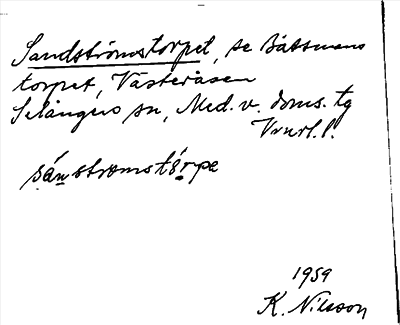 Sandströmstorpet, se Båtsmans
torpet, Västeråsen
Selångers sn, Med. v. doms. tg
Vnrl. l.
sán stroms tórpe
1959
K. Nilsson